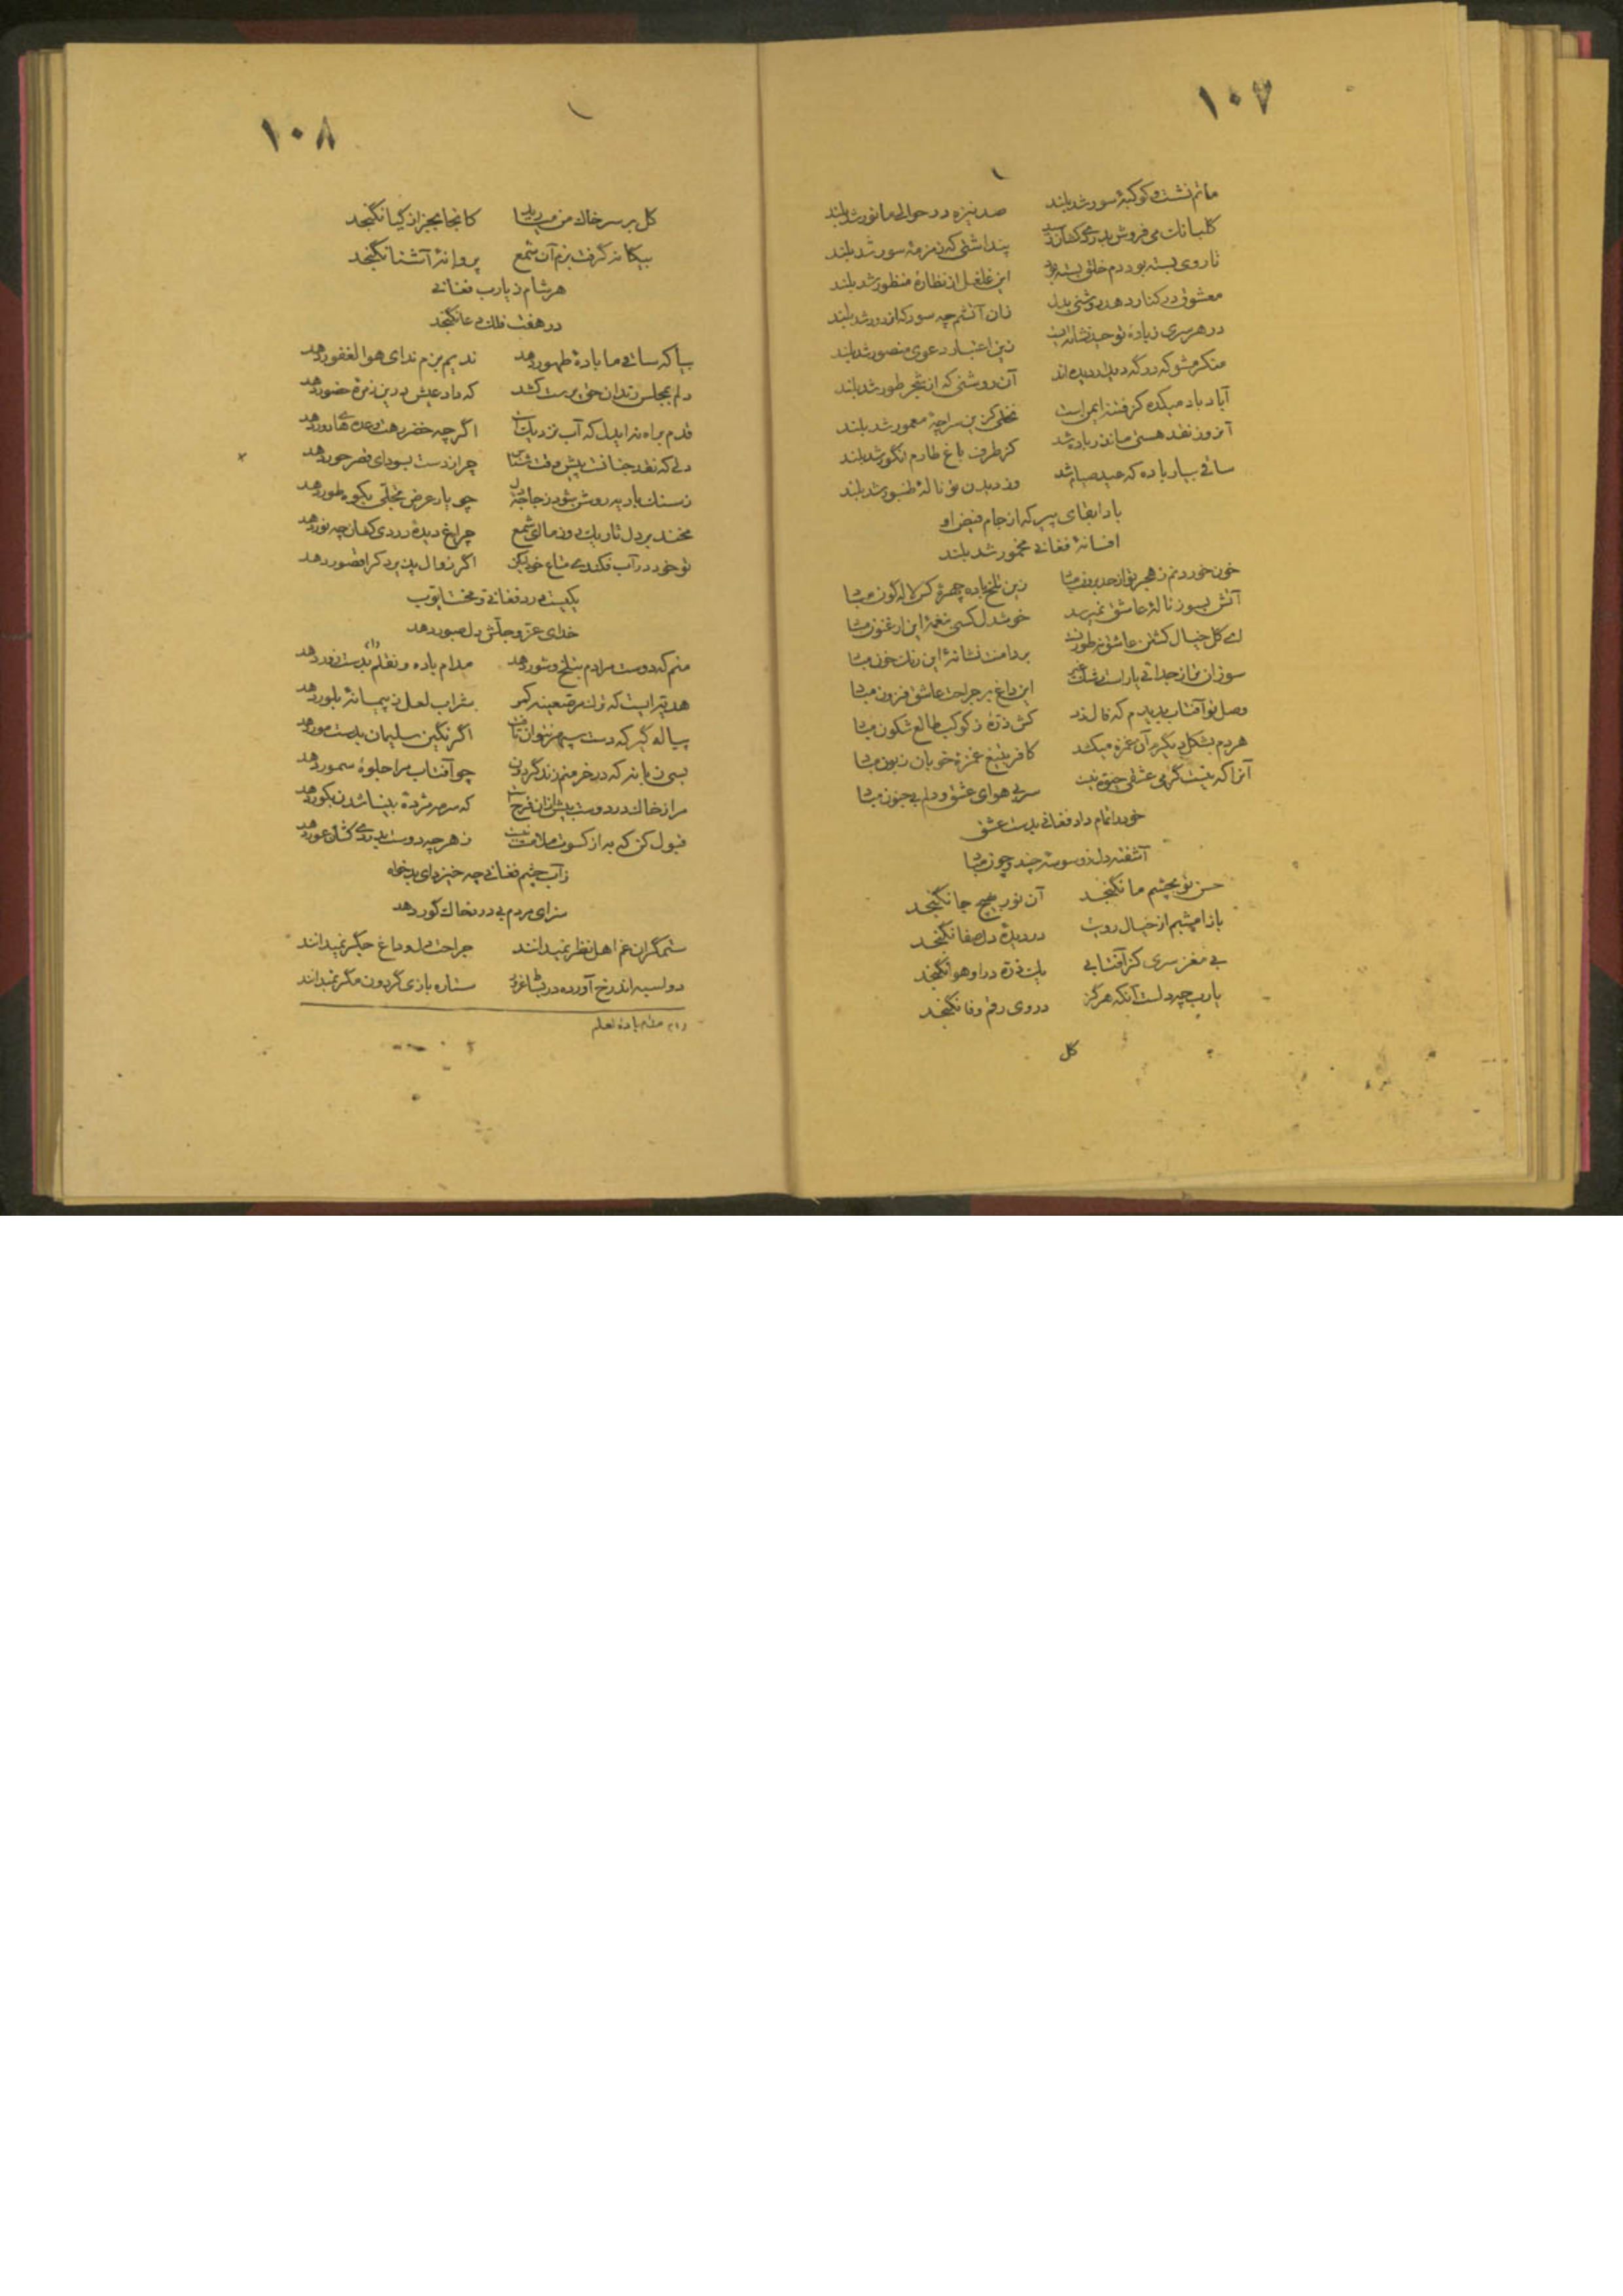 ۱۰۷
ماتم نشست و کوکبهٔ سور شد بلند صد نیزه در حوالی ما نور شد بلند
گلبانگ می فروش پنداشتی که زمزمهٔ سور شد بلند
تا روی بسته بود دم خلق بسته بود این غلغل از نظارهٔ منظور شد بلند
معشوق در کنار دهد روشنی بدل زان آتشم چه سود که از دور شد بلند
در هر سری ز بادهٔ توحید نشأه‌ایست زین اعتبار دعوی منصور شد بلند
منکر مشو که در گه دیدار دیده‌اند آن روشنی که از شجر طور شد بلند
آباد باد میکده کز فتنه ایمن است نخلی کزین سراچهٔ معمور شد بلند
آنروز نقد هستی ما نذر باده شد کز طرف باغ طارم انگور شد بلند
ساقی بیار باده که عید صیام شد وز دیدن تو نالهٔ طنبور شد بلند
بادا بقای پیر که از جام فیض او
افسانهٔ فغانی مخمور شد بلند
خون خوردنم ز هجر تو از حد برون مباد زین تلخ باده چهرهٔ کس لاله‌گون مباد
آتش بسوز نالهٔ عاشق نمیرسد خوشدل کسی بنغمهٔ این ارغنون مباد
ای گل خیال کشتن عاشق بر دامنت نشانهٔ این رنگ خون مباد
سوزان من از جدائی یار این داغ بر جراحت عاشق فزون مباد
وصل تو آفتاب که فال زد کس ذرهٔ ز کوکب طالع شکون مباد
هر دم بشکل دیگرم آن غمزه میکشد کافر بتیغ غمزهٔ خوبان زبون مباد
آنرا که نیست گرمی عشقی سر بی هوای عشق و دلم بی جنون مباد
خود را تمام داد فغانی بدست عشق
آشفته دل ز وسوسهٔ چند و چون مباد
حسن تو بچشم ما نگنجد آن نور بهیچ جا نگنجد
باز آمدیم از خیال رویت در دیدهٔ دل صفا نگنجد
بی مغز سری کز آفتابی یک ذره در او هوا نگنجد
یارب چه دلست آنکه هرگز در وی رقم وفا نگنجد
گل
۱۰۸
گل بر سر خاک من مپاشید کانجا بجز از گیا نگنجد
بیگانه گرفت بزم آن شمع پروانهٔ آشنا نگنجد
هر شام ز یارب فغانی
در هفت فلک دعا نگنجد
بیا که ساقی ما بادهٔ طهور دهد ندیم بزم ندای هوالغفور دهد
دلم بمجلس رندان حق پرست کشد که داد عیش درین زمرهٔ حضور دهد
قدم براه نه ایدل که آب نزدیک است اگرچه خضر رهت وعده‌های دور دهد
دلی که نقد جنانت پیش چرا ز دست بسودای قصر حور دهد
ز سنگ بادیه روشن شود چو یار عرض تجلی بکوه طور دهد
مخند بر دل تاریک چراغ دیدهٔ دردی کشان چه نور دهد
تو خود در آب فکندی متاع خود لیکن اگر زوال پذیرد کرا قصور دهد
یکیست درد فغانی و محنت ایوب
خدای عز و جلش دل صبور دهد
منم که دوست مرادم بتلخ و شور دهد مدام باده و نقلم بدست زور دهد
شراب لعل ز پیمانهٔ بلور دهد
پیاله گیر که دست سپهر نتوان تافت اگر نگین سلیمان بدست مور دهد
بسی نماند که در خرمنم زند گردون چو آفتاب مرا جلوهٔ سمور دهد
مرا ز خاک در دوست بیش ازان فرح است که سرمه مژدهٔ بینا شدن بکور دهد
قبول کن که به از کسوت ملامت نیست ز هر چه دوست بدردی کشان عور دهد
ز آب چشم فغانی چه خیزد ای بدخواه
سزای مردم بی درد خاک گور دهد
ستمگران غم اهل نظر نمیدانند جراحت دل و داغ جگر نمیدانند
دو اسبه اند رخ آورده در ستاره بازی گردون مگر نمیدانند
(۱) مدام بادهٔ لعلم